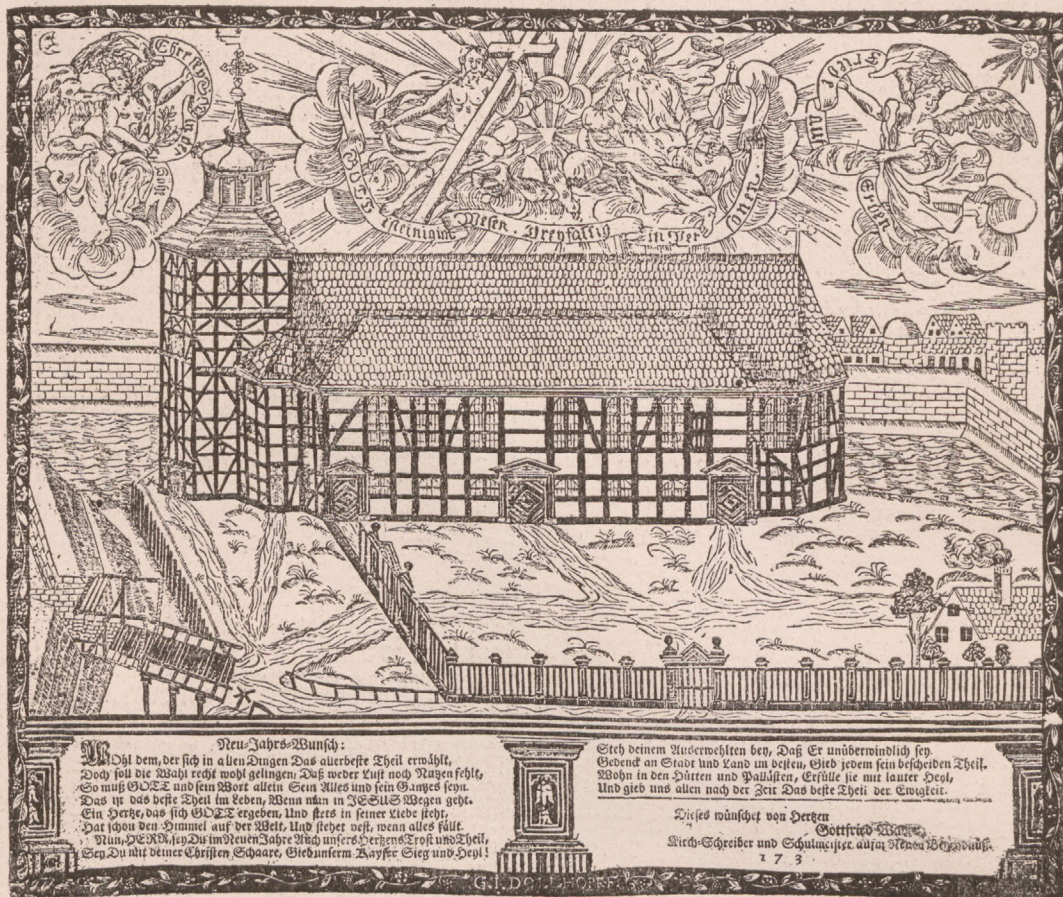 Ehre
GOTT
Einig im Wesen . Dreyfältig in Per sonen
und Fried
Erden
Neu-Jahrs-Wunsch:
WOhl dem, der sich in allen Dingen Das allerbeste Theil erwählt,
Doch soll die Wahl recht wohl gelingen, Daß weder Lust noch Nutzen fehlt,
So muß GOTT und sein Wort allein Sein Alles und sein Gantzes seyn.
Das ist das beste Theil im Leben, Wenn man in JESUS Wegen geht.
Ein Hertze, das sich GOTT ergeben, Und stets in seiner Liebe steht,
Hat schon den Himmel auf der Welt, Und stehet vest, wenn alles fällt.
Nun, HERR, sey Du im Neuen Jahre Auch unsers Hertzens Trost und Theil,
Sey Du mit deiner Christen Schaare, Gieb unserm Kayser Sieg und Heyl!
Steh deinem Auserwehlten bey, Daß Er unüberwindlich sey.
Gedenck an Stadt und Land im besten, Gieb jedem sein bescheiden Theil.
Wohn in den Hütten und Pallästen, Erfülle sie mit lauter Heyl,
Und gieb uns allen nach der Zeit Das beste Theil der Ewigkeit.
Dieses wünschet von Hertzen
Gottfried
Kirch-Schreiber und Schulmeister aufm Neuen
1 7 3
G. I.